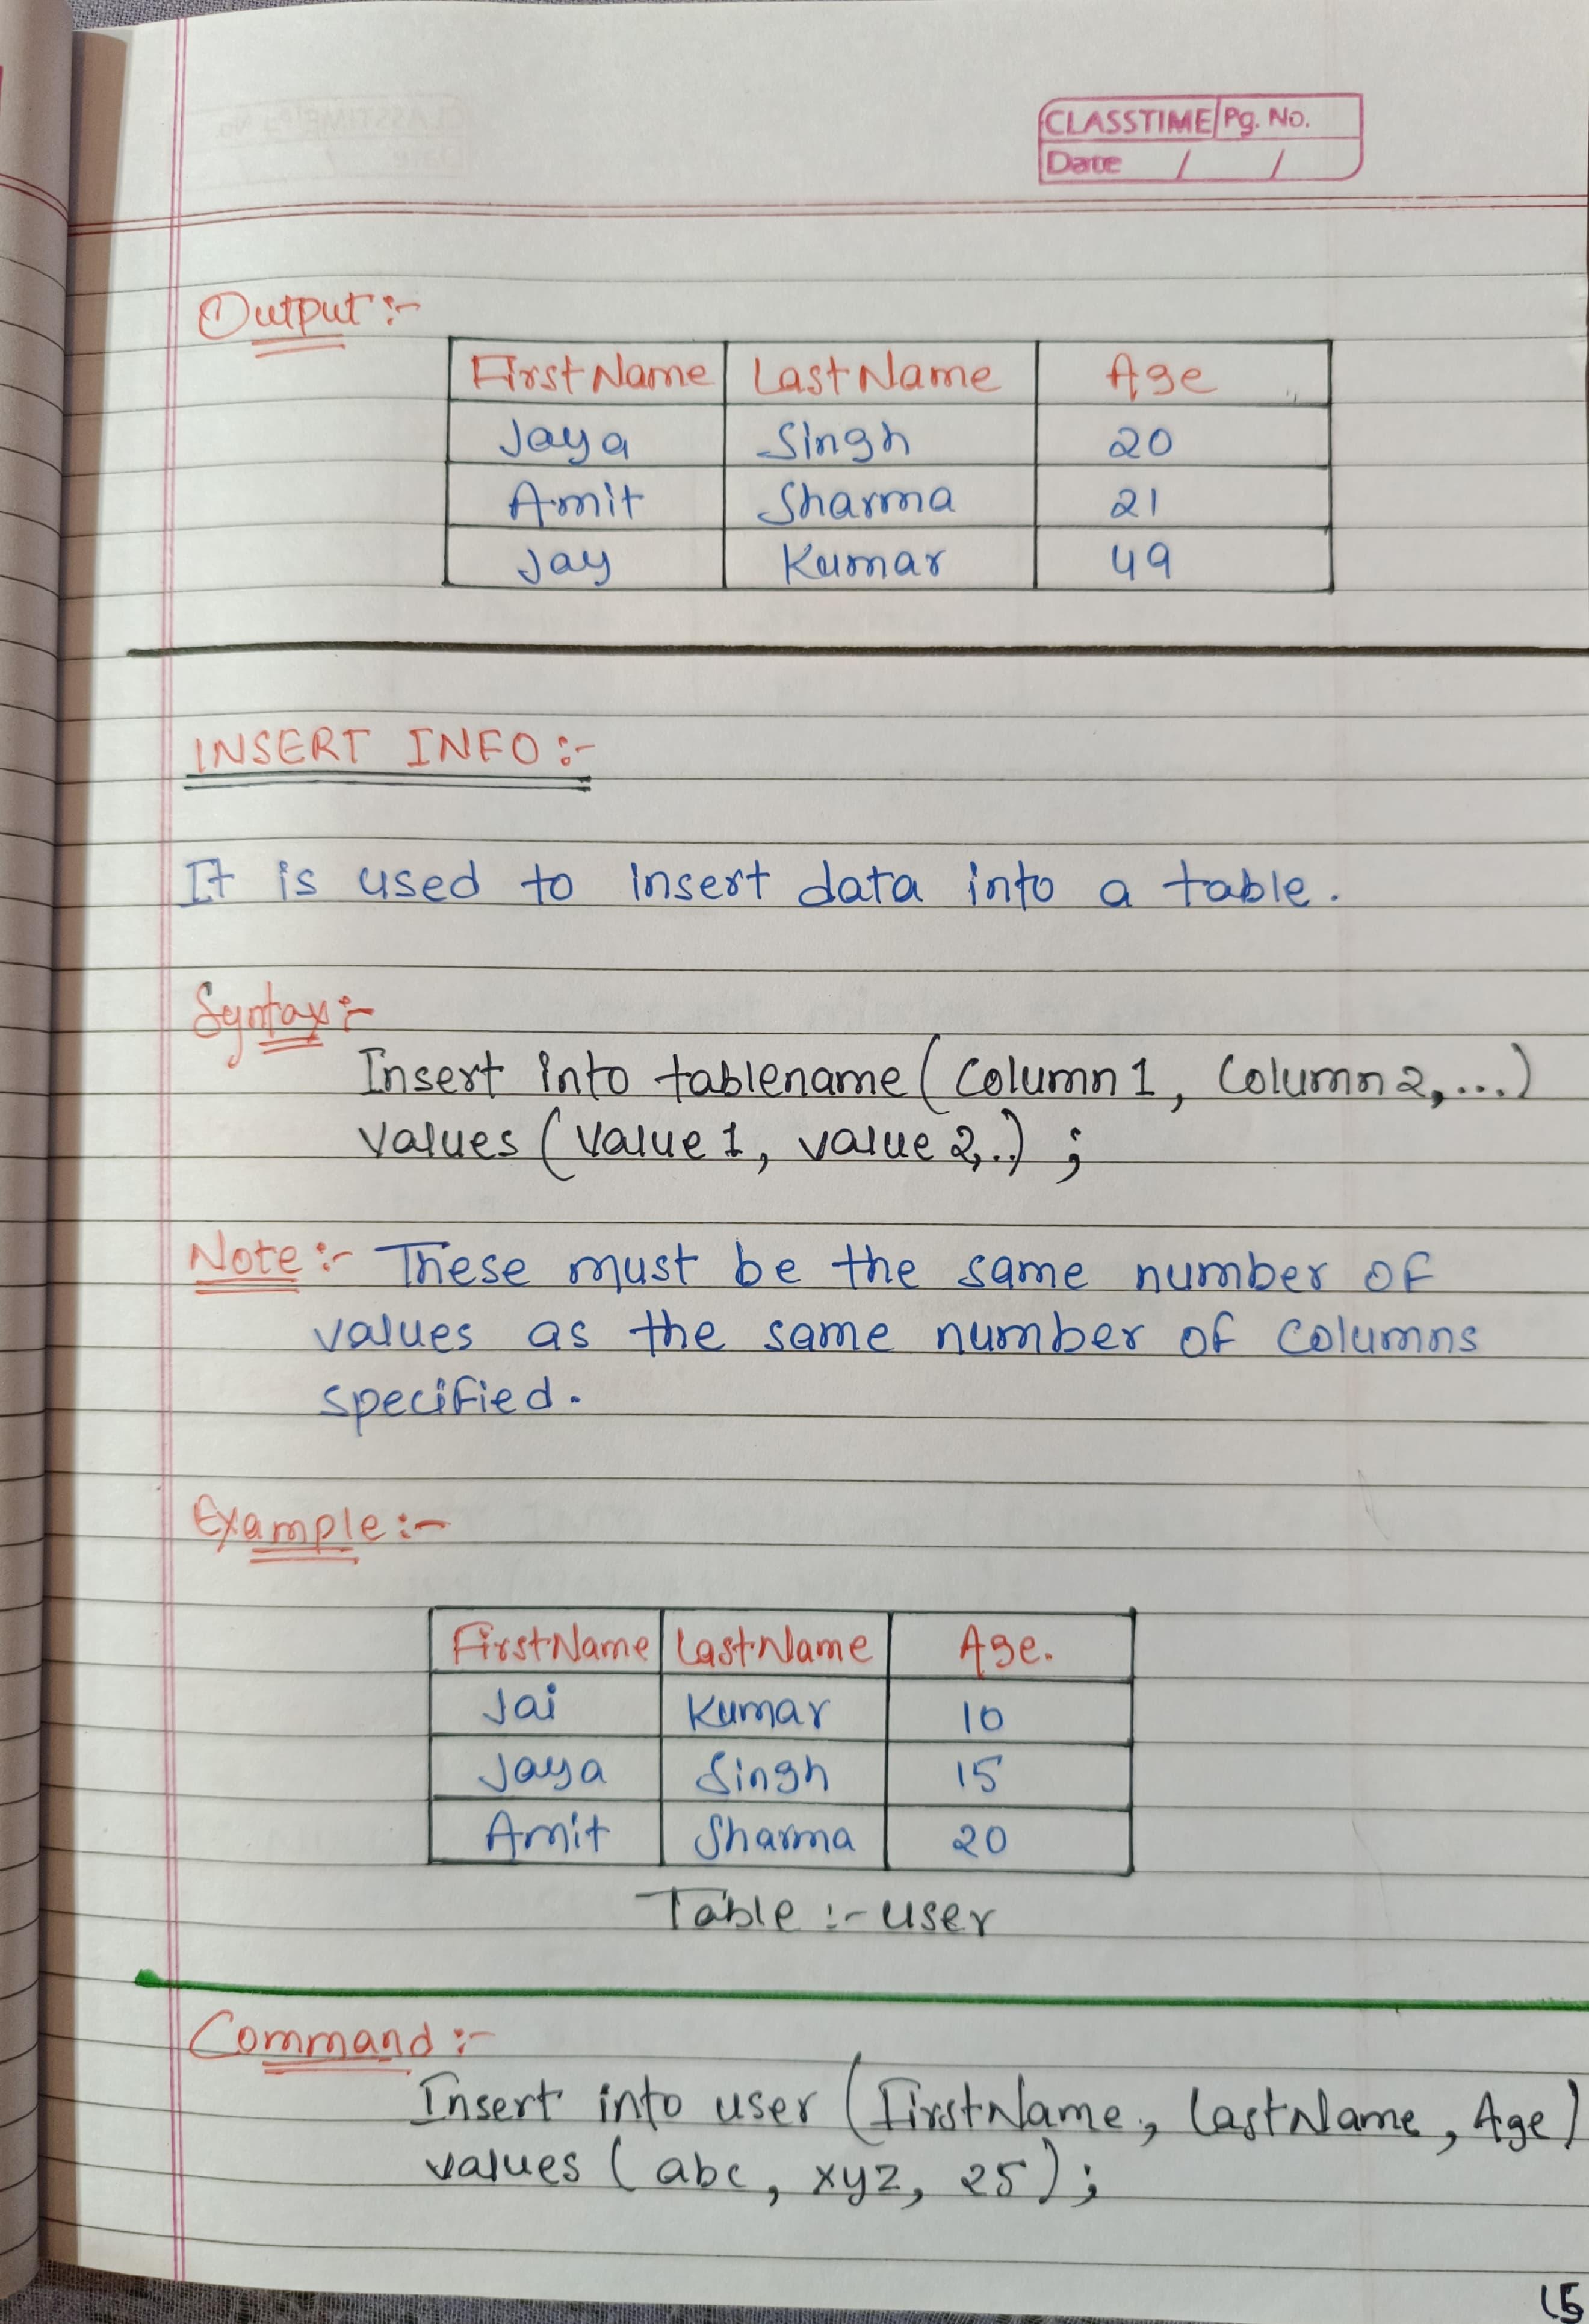 CLASSTIME Pg. No.
Date / /
Output :-
FirstName LastName Age
Jaya Singh 20
Amit Sharma 21
Jay Kumar 49
INSERT INFO :-
It is used to insert data into a table.
Syntax :-
Insert into tablename (Column 1, Column 2,...)
values (value 1, value 2,..) ;
Note :- These must be the same number of
values as the same number of columns
specified.
Example :-
FirstName LastName Age.
Jai Kumar 10
Jaya Singh 15
Amit Sharma 20
Table :- user
Command :-
Insert into user (FirstName, LastName, Age)
values (abc, xyz, 25) ;
15